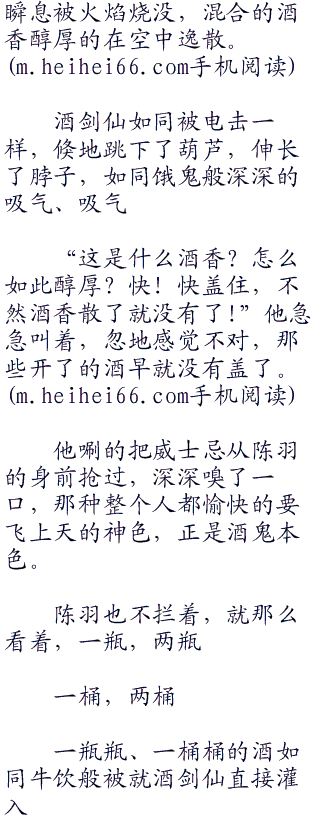 瞬息被火焰烧没，混合的酒
香醇厚的在空中逸散。
(m.heihei66.com手机阅读)
酒剑仙如同被电击一
样，倏地跳下了葫芦，伸长
了脖子，如同饿鬼般深深的
吸气、吸气
“这是什么酒香？怎么
如此醇厚？快！快盖住，不
然酒香散了就没有了!”他急
急叫着，忽地感觉不对，那
些开了的酒早就没有盖了。
(m.heihei66.com手机阅读)
他唰的把威士忌从陈羽
的身前抢过，深深嗅了一
口，那种整个人都愉快的要
飞上天的神色，正是酒鬼本
色。
陈羽也不拦着，就那么
看着，一瓶，两瓶
一桶，两桶
一瓶瓶、一桶桶的酒如
同牛饮般被就酒剑仙直接灌
入